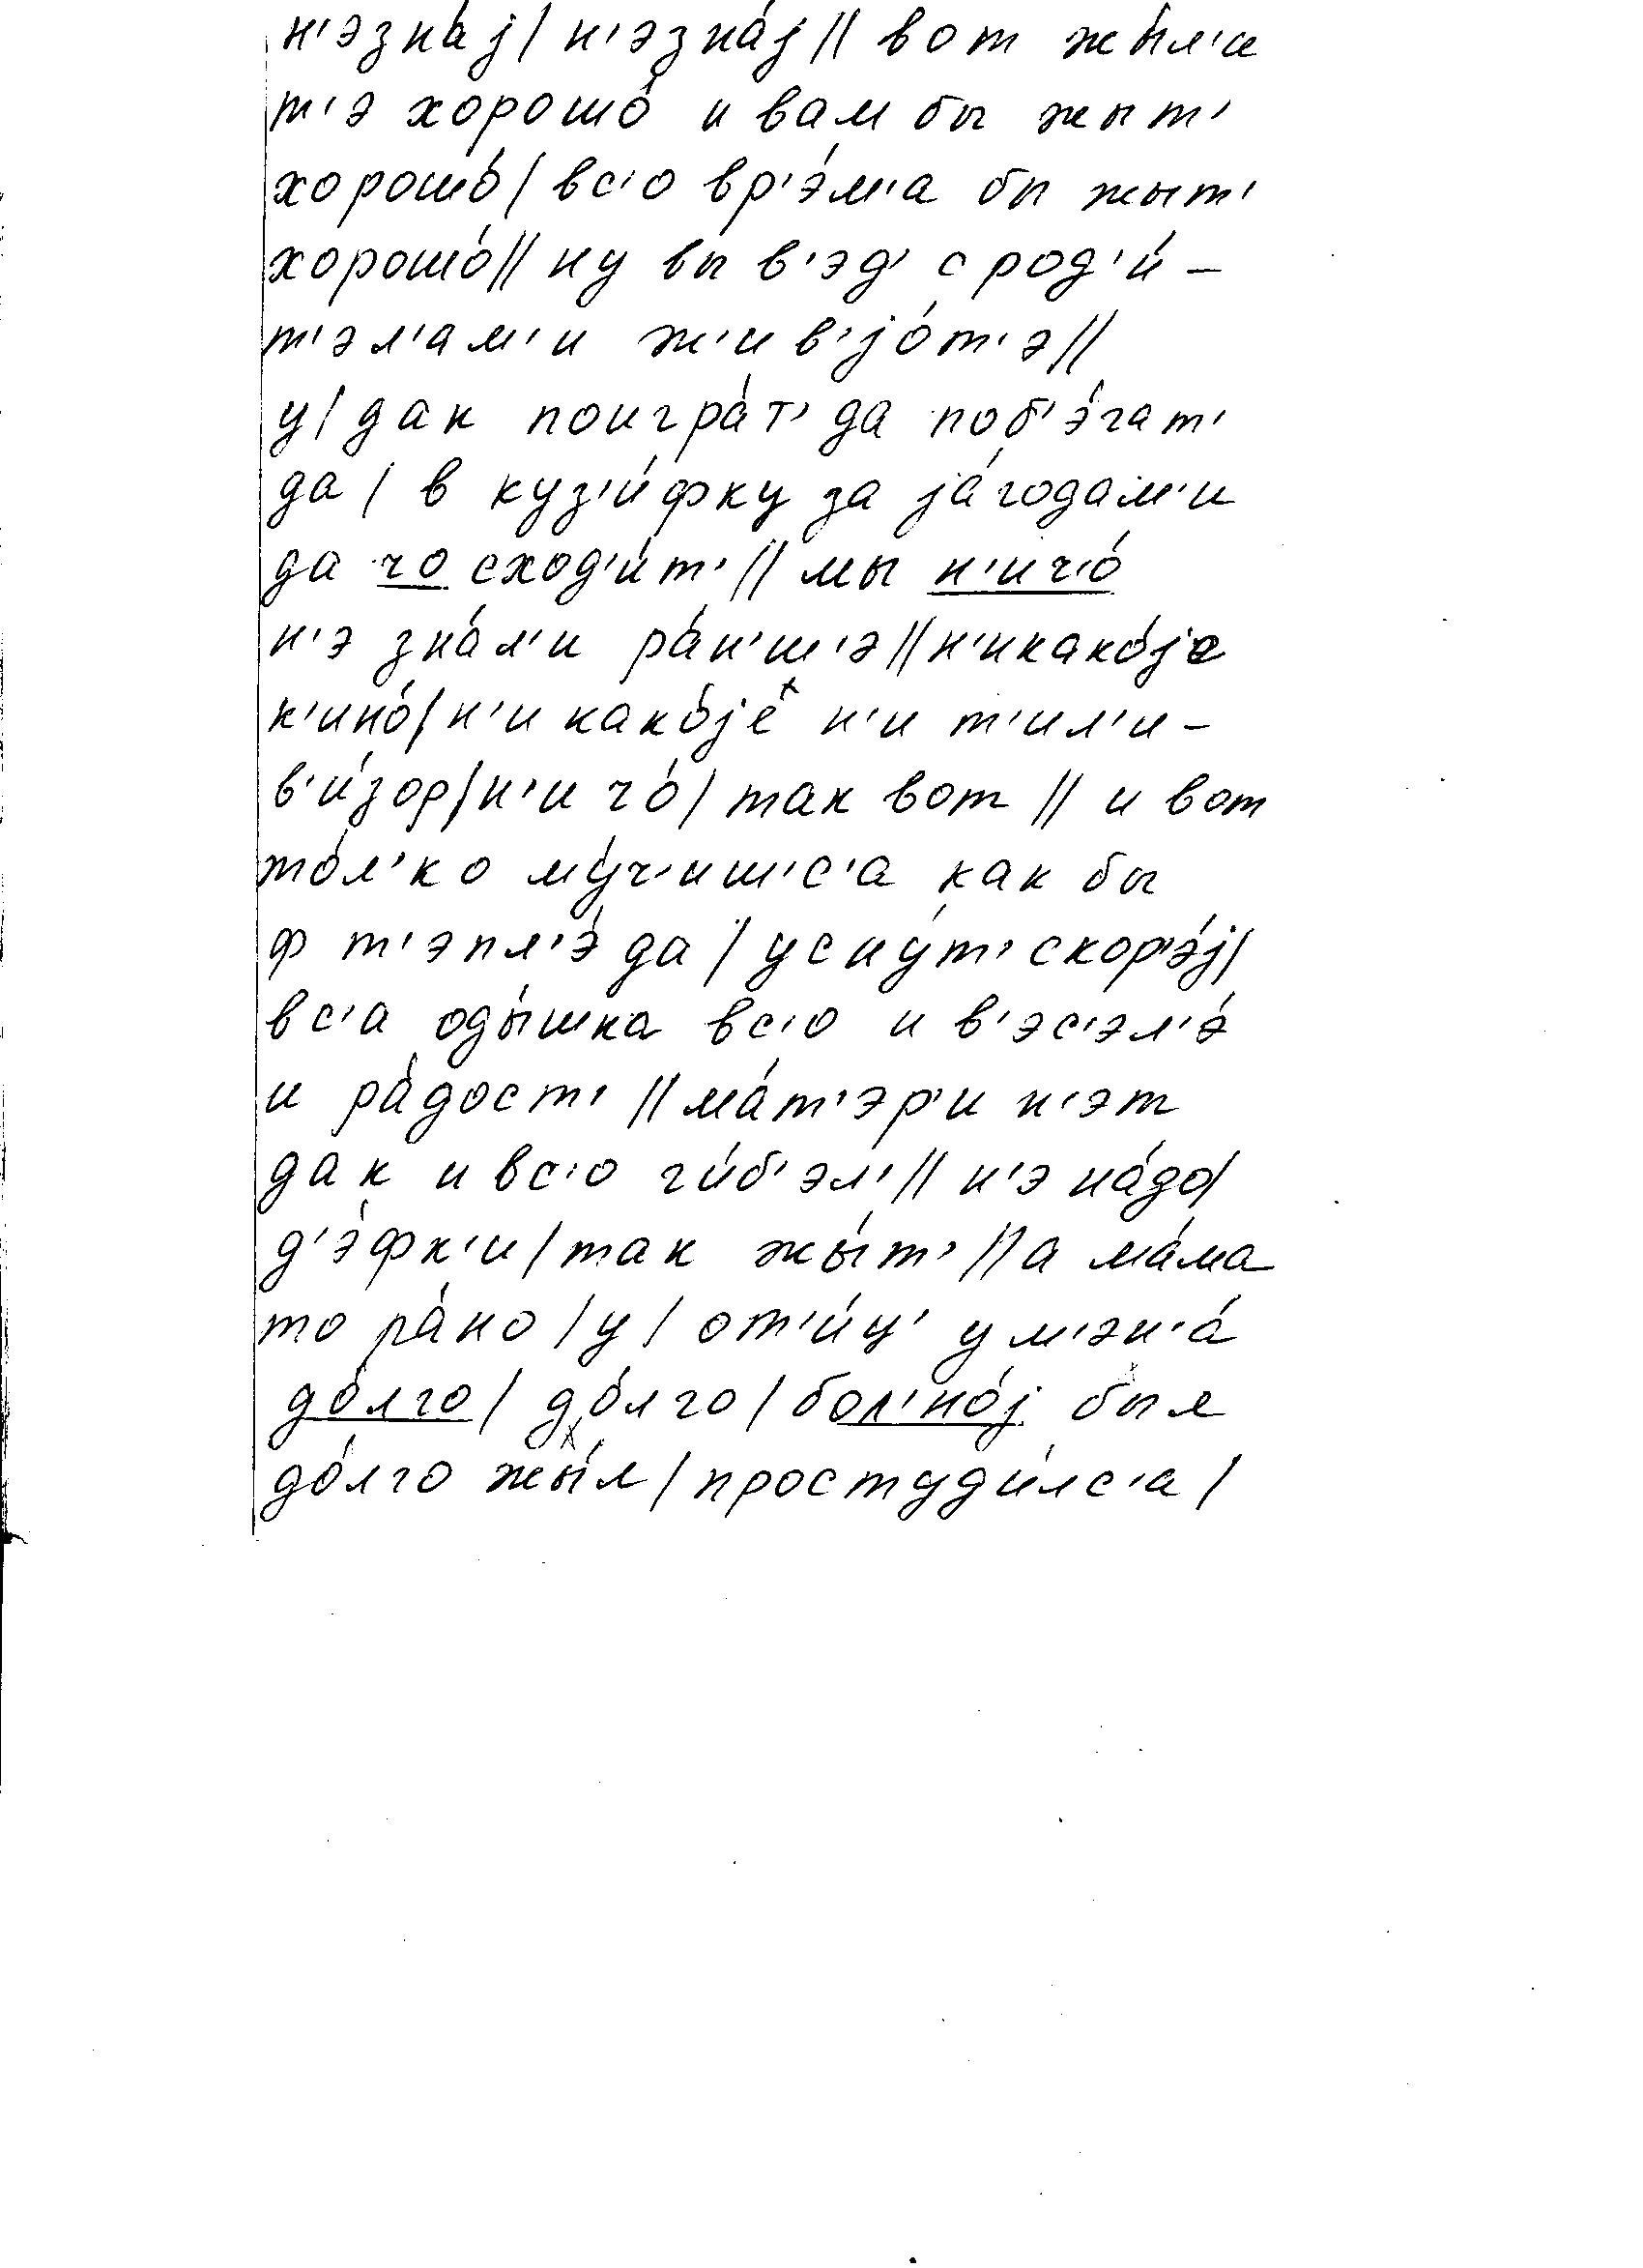 н'эзна́ј / н'эзна́ј // вот жы́л'и
т'э хорошо́ и вам бы жыт'
хорошо́ / вс'о вр'э́м'а бы жыт'
хорошо́ // ну вы в'эд' с род'и́ –
т'эл'ам'и ж'ив'јо́т'э //
у / дак поигра́т' да поб'э́гат'
да / в куз'и́фку за ја́годам'и
да чо сход'и́т' // мы н'ич'о́
н'э зна́л'и ра́н'ш'э // н'икако́је
к'ино́ / н'и како́је н'и т'ил'и –
в'и́зор / н'и чо́ / так вот // и вот
то́л'ко му́ч'иш'с'а как бы
ф т'эпл'э́ да / усну́т' скор'э́ј /
вс'а оды́шка вс'о и в'эс'эл'э́
и ра́дост' // ма́т'эр'и н'эт
дак и вс'о ги́б'эл' // н'э на́до /
д'э́фк'и / так жы́т' // а ма́ма
то ра́но / у / от'и́ц' у м'эн'а́
до́лго / до́лго / бол'но́ј был
до́лго жы́л / простуди́лс'а /